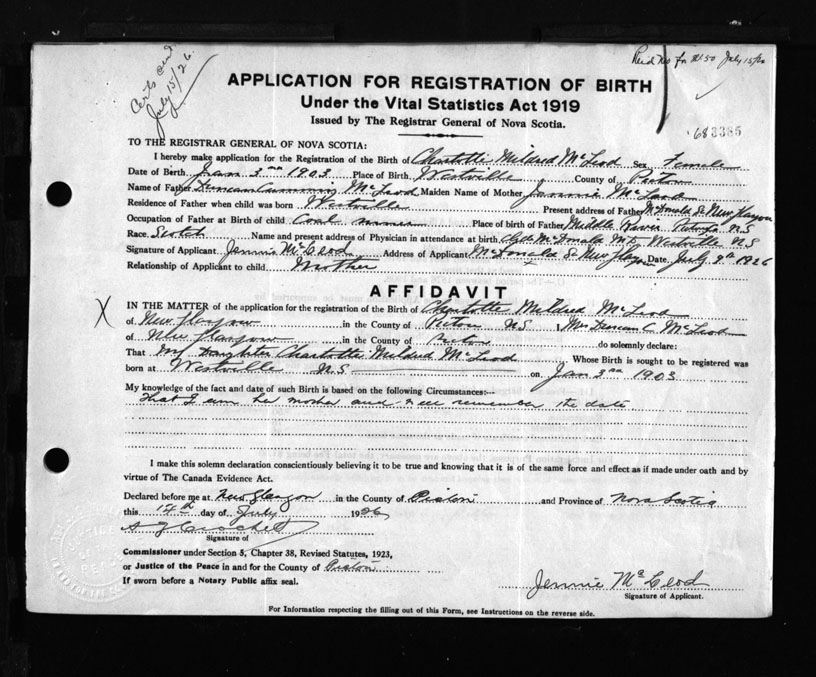 Certs and
July 15/26.
Recd No for $1.50 July 15/26
APPLICATION FOR REGISTRATION OF BIRTH
Under the Vital Statistics Act 1919
Issued by The Registrar General of Nova Scotia.
683385
TO THE REGISTRAR GENERAL OF NOVA SCOTIA:
I hereby make application for the Registration of the Birth of Charlotte Mildred McLeod Sex Female
Date of Birth Jan 3rd 1903 Place of Birth Westville County of Pictou
Name of Father Duncan Cumming McLeod Maiden Name of Mother Jennie McLeod
Residence of Father when child was born Westville Present address of Father McDonald St New Glasgow
Occupation of Father at Birth of child Coal miner Place of birth of Father Middle River Pictou NS
Race Scotch Name and present address of Physician in attendance at birth McDonald MD Westville NS
Signature of Applicant Jennie McLeod Address of Applicant McDonald St New Glasgow Date July 9th 1926
Relationship of Applicant to child Mother
AFFIDAVIT
X IN THE MATTER of the application for the registration of the Birth of Charlotte Mildred McLeod
of New Glasgow in the County of Pictou NS I, Mrs Duncan C. McLeod
of New Glasgow in the County of Pictou do solemnly declare:
That my Daughter Charlotte Mildred McLeod Whose Birth is sought to be registered was
born at Westville NS on Jan 3rd 1903
My knowledge of the fact and date of such Birth is based on the following Circumstances:—
that I am her mother and well remember the date
I make this solemn declaration conscientiously believing it to be true and knowing that it is of the same force and effect as if made under oath and by
virtue of The Canada Evidence Act.
Declared before me at New Glasgow in the County of Pictou and Province of Nova Scotia
this 14th day of July 1926
Signature of
Commissioner under Section 5, Chapter 38, Revised Statutes, 1923,
or Justice of the Peace in and for the County of Pictou
If sworn before a Notary Public affix seal.
Jennie McLeod
Signature of Applicant.
For Information respecting the filling out of this Form, see Instructions on the reverse side.